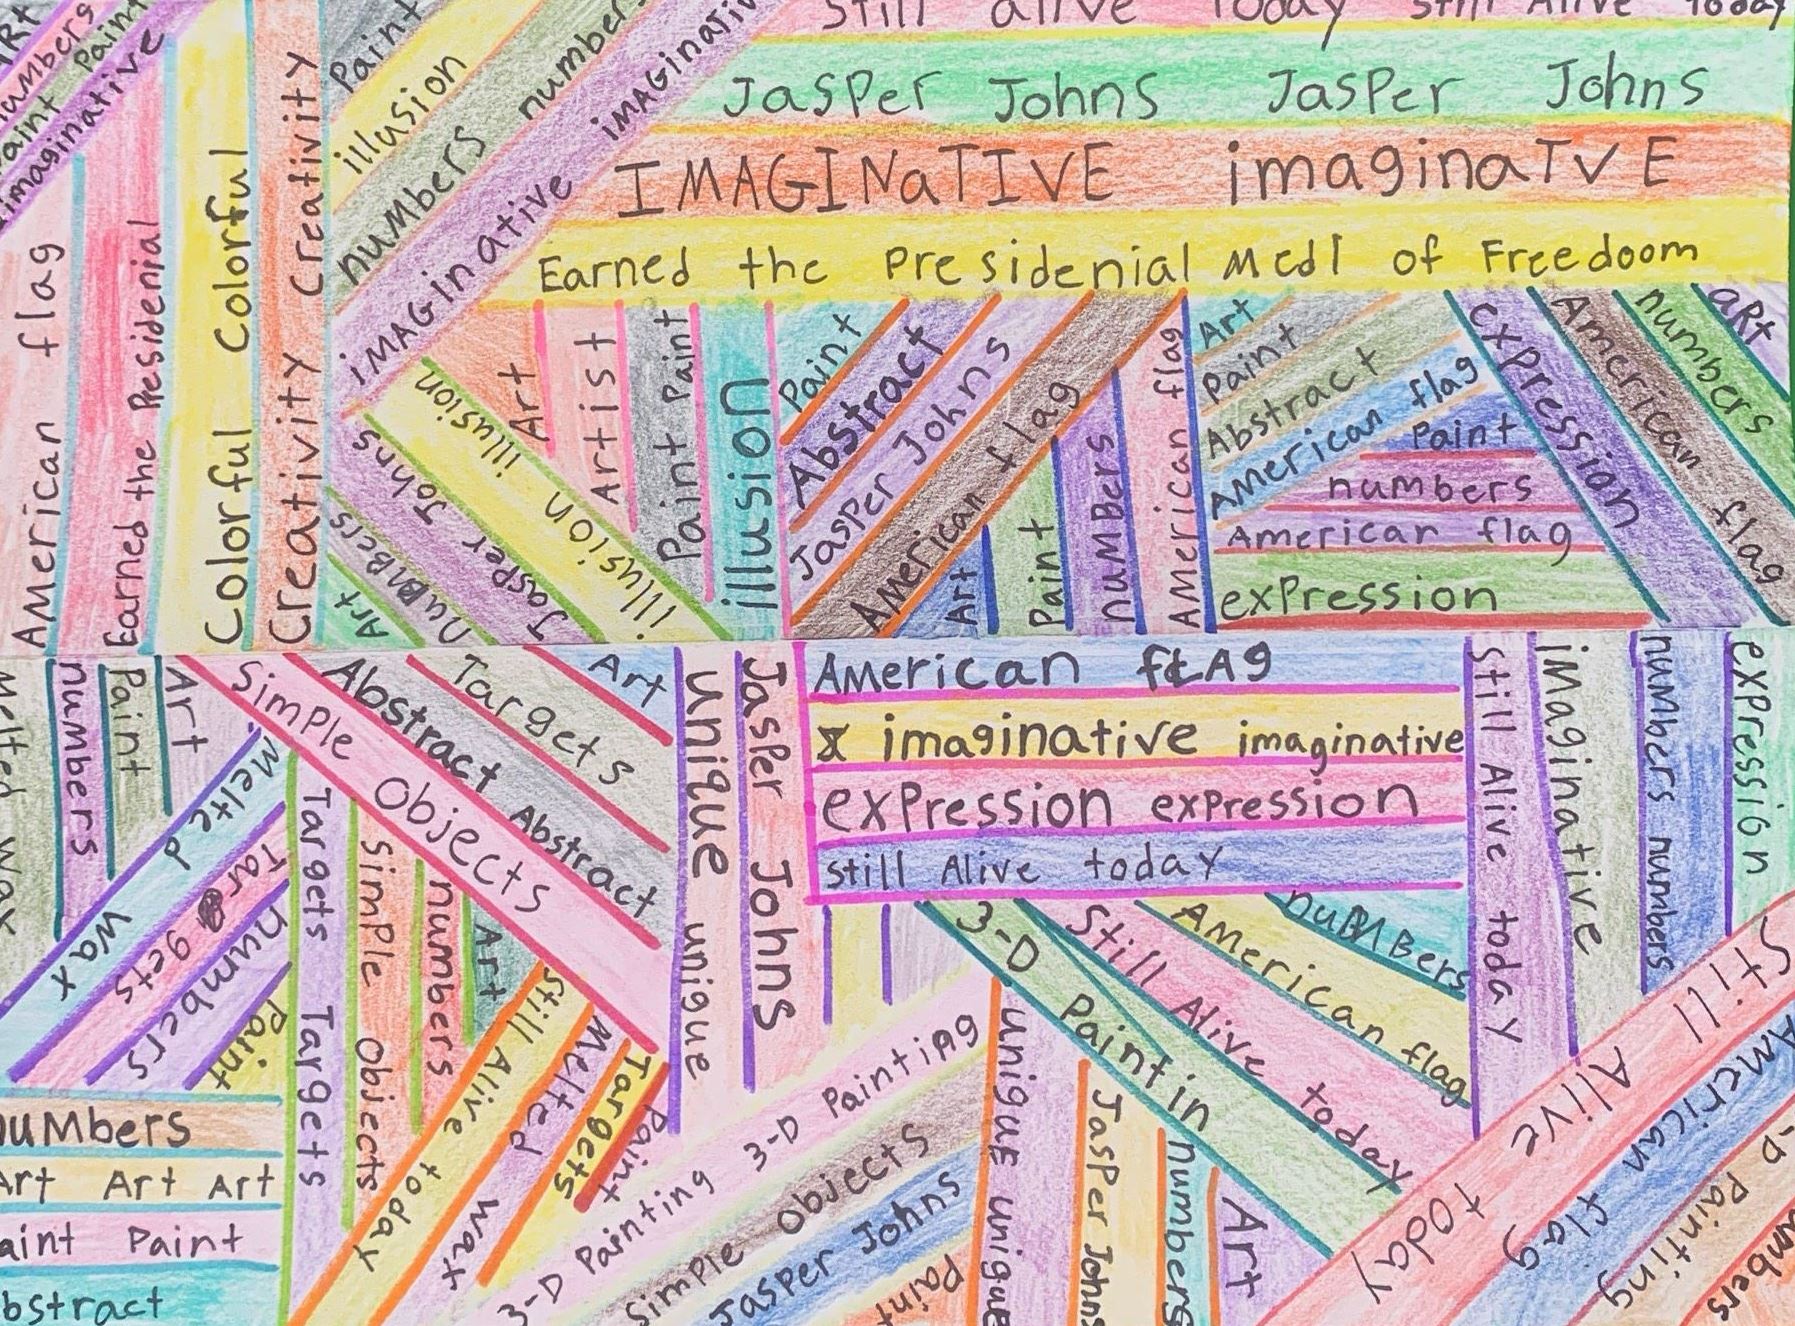 Still alive Today Still Alive Today
Jasper Johns Jasper Johns
IMAGINaTIVE imaginaTvE
Earned the Presidenial Medl of Freedoom
ART
numbers
Paint Paint
imaginative
American flag
Earned the Presidenial
Colorful Colorful
Creativity Creativity
Paint
illusion
numbers numbers
iMAGinative iMAGinative
illusion illusion illusion
Jasper Johns
NuMBers
Art
Art
Artist
Paint Paint
illusion
Paint
Abstract
Jasper Johns
American flag
Art
Paint
numbers
American flag
Art
Paint
Abstract
American flag
Paint
numbers
American flag
exPression
expression
American flag
numbers
aRt
Melted Wax
numbers
Paint
Art
Simple Objects
Abstract Abstract
Targets
Art
Melted Wax
Targets
numbers
Paint
Targets Targets
Simple Objects
numbers
Art
Still Alive today
Melted Wax
Targets
Paint
numbers
Art Art Art
Paint Paint
bstract
unique unique
Jasper Johns
American fLAg
imaginative imaginative
exPression exPression
still Alive today
Still Alive today
iMaginative
numbers numbers
expression
3-D Paintin
Still Alive today
American flag
nuMBers
3-D Painting 3-D Painting
Simple Objects
Jasper Johns
Paint
uniguE uniguE
Jasper Johns
numbers
Art
Still Alive today
American flag
-D Painting
umbers